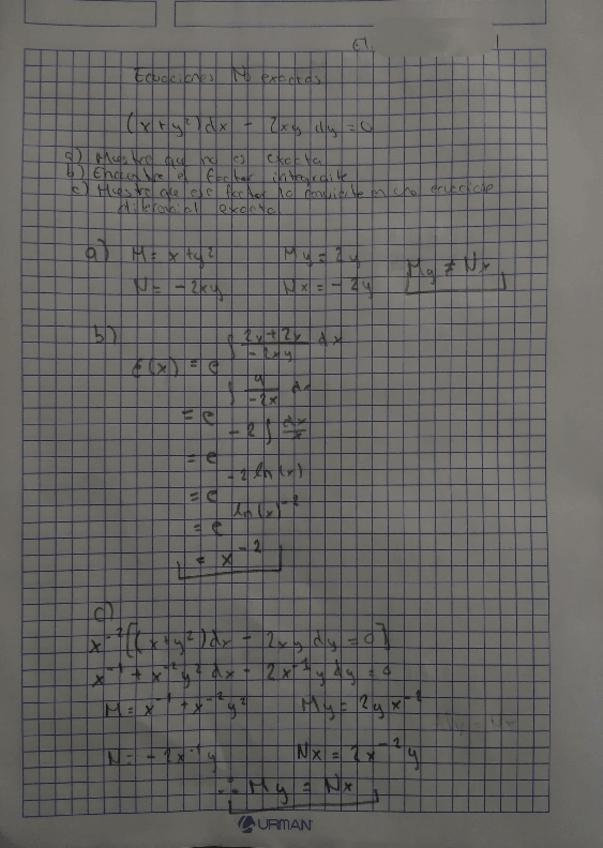 Ecuaciones No exactas
(x+y²)dx - 2xy dy = 0
a) Muestre que no es exacta
b) Encuentre el factor integrante
c) Muestre que ese factor lo convierte en una ecuación
diferencial exacta
a) M = x+y² My = 2y My ≠ Nx
N = -2xy Nx = -2y
b)
F(x) = e^∫ (2y+2y)/(-2xy) dx
= e^∫ 4/(-2x) dx
= e^-2∫ dx/x
= e^-2 ln(x)
= e^ln(x)^-2
= x^-2
c)
x^-2[(x+y²)dx - 2xy dy = 0]
x^-1 + x^-2 y² dx - 2x^-1 y dy = 0
M = x^-1 + x^-2 y² My = 2yx^-2
N = -2x^-1 y Nx = 2x^-2 y
∴ My = Nx
URMAN